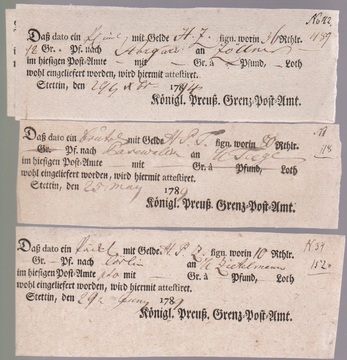 Daß dato ein mit Gelde H. J. sign. worin 36 Rthlr.
Gr. Pf. nach Stargard an Zöllner
im hiesigen Post-Amte mit Gr. à Pfund, Loth
wohl eingeliefert worden, wird hiermit attestiret.
Stettin, den 29 178
Königl. Preuß. Grenz-Post-Amt.
Daß dato ein mit Gelde H P. T. sign. worin Rthlr.
Gr. Pf. nach an
im hiesigen Post-Amte mit Gr. à Pfund, Loth
wohl eingeliefert worden, wird hiermit attestiret.
Stettin, den 28 may 178
Königl. Preuß. Grenz-Post-Amt.
Daß dato ein mit Gelde H. P. Z. sign. worin 10 Rthlr.
Gr. Pf. nach Berlin an
im hiesigen Post-Amte mit Gr. à Pfund, Loth
wohl eingeliefert worden, wird hiermit attestiret.
Stettin, den 29 Juny 178
Königl. Preuß. Grenz-Post-Amt.